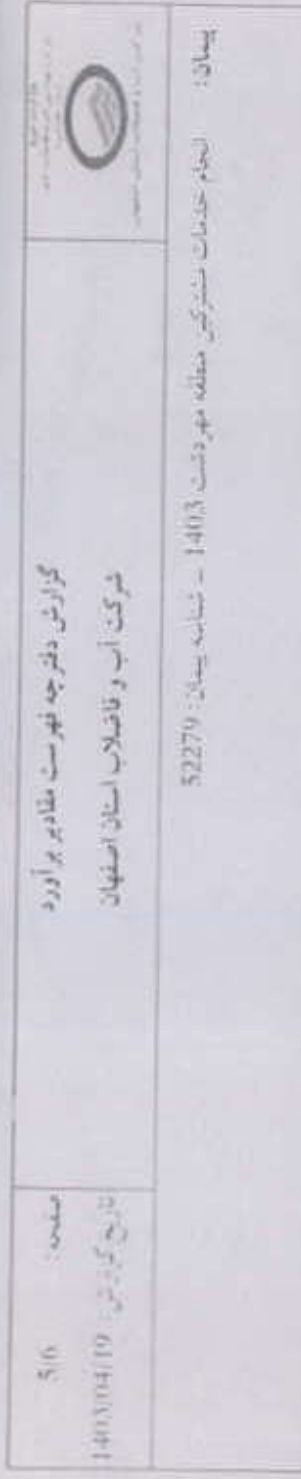 گزارش دفترچه فهرست مقادیر برآورد
شرکت آب و فاضلاب استان اصفهان
صفحه: 5/6
تاریخ گزارش: 1403/04/19
پیمان: انجام خدمات مشترکین منطقه مهردشت 1403 - شناسه پیمان: 52279